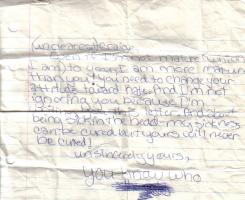 (unclearest) Craig,
Even if I'm not mature (which
I am) to you, I am more mature
than you! You need to change your
attitude toward
And I'm not
ignoring you because I'm
letter. And about
being sick in the head my sickness
can be cured but yours will never
be cured!
unsincerely yours,
you know who